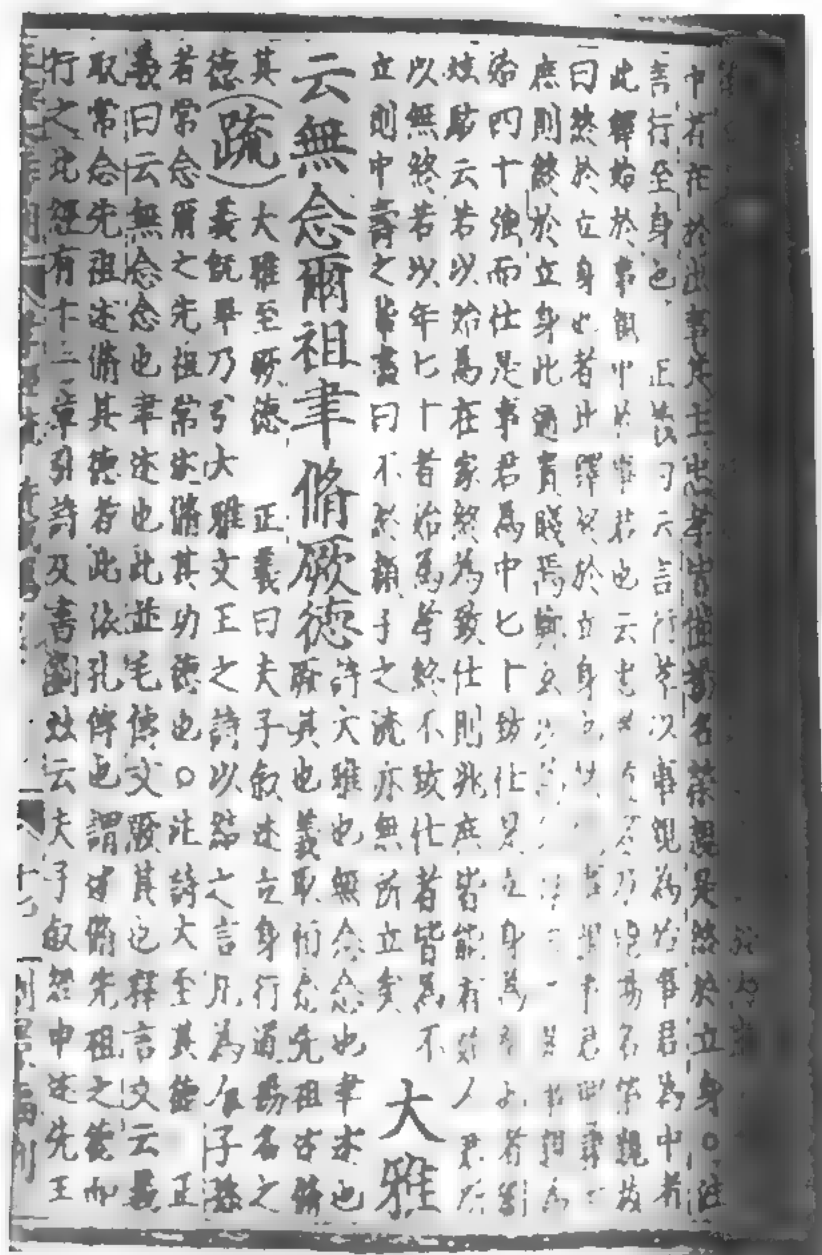 中若在於此事先主忠孝皆備揚名榮親是終於立身○注
言行至身也　正義曰云言行孝以事親為始事君為中者
此釋始於事親中於事君也云忠孝道著乃能揚名榮親故
曰終於立身也者此釋終於立身也
庶則終於立身此通貴賤焉鄭玄以為
始四十強而仕是事君為中七十致仕是立身為終也者劉
炫駁云若以始為在家終為致仕則兆庶皆能有始人君所
以無終若以年七十者始為孝終不致仕者皆為不
立則中壽之輩盡曰不終顏子之流亦無所立矣　大雅
云無念爾祖聿脩厥德
詩大雅也無念念也聿述也
厥其也義取恒念先祖述脩
其
德
(疏)
大雅至厥德　正義曰夫子敘述立身行道揚名之
義既畢乃引大雅文王之詩以結之言凡為人子孫
若常念爾之先祖常述脩其功德也○注詩大至其德　正
義曰云無念念也聿述也此並毛傳文厥其也釋言文云義
取常念先祖述脩其德者此依孔傳也謂述脩先祖之德而
行之此經有十三章引詩及書劉炫云夫子敘經申述先王